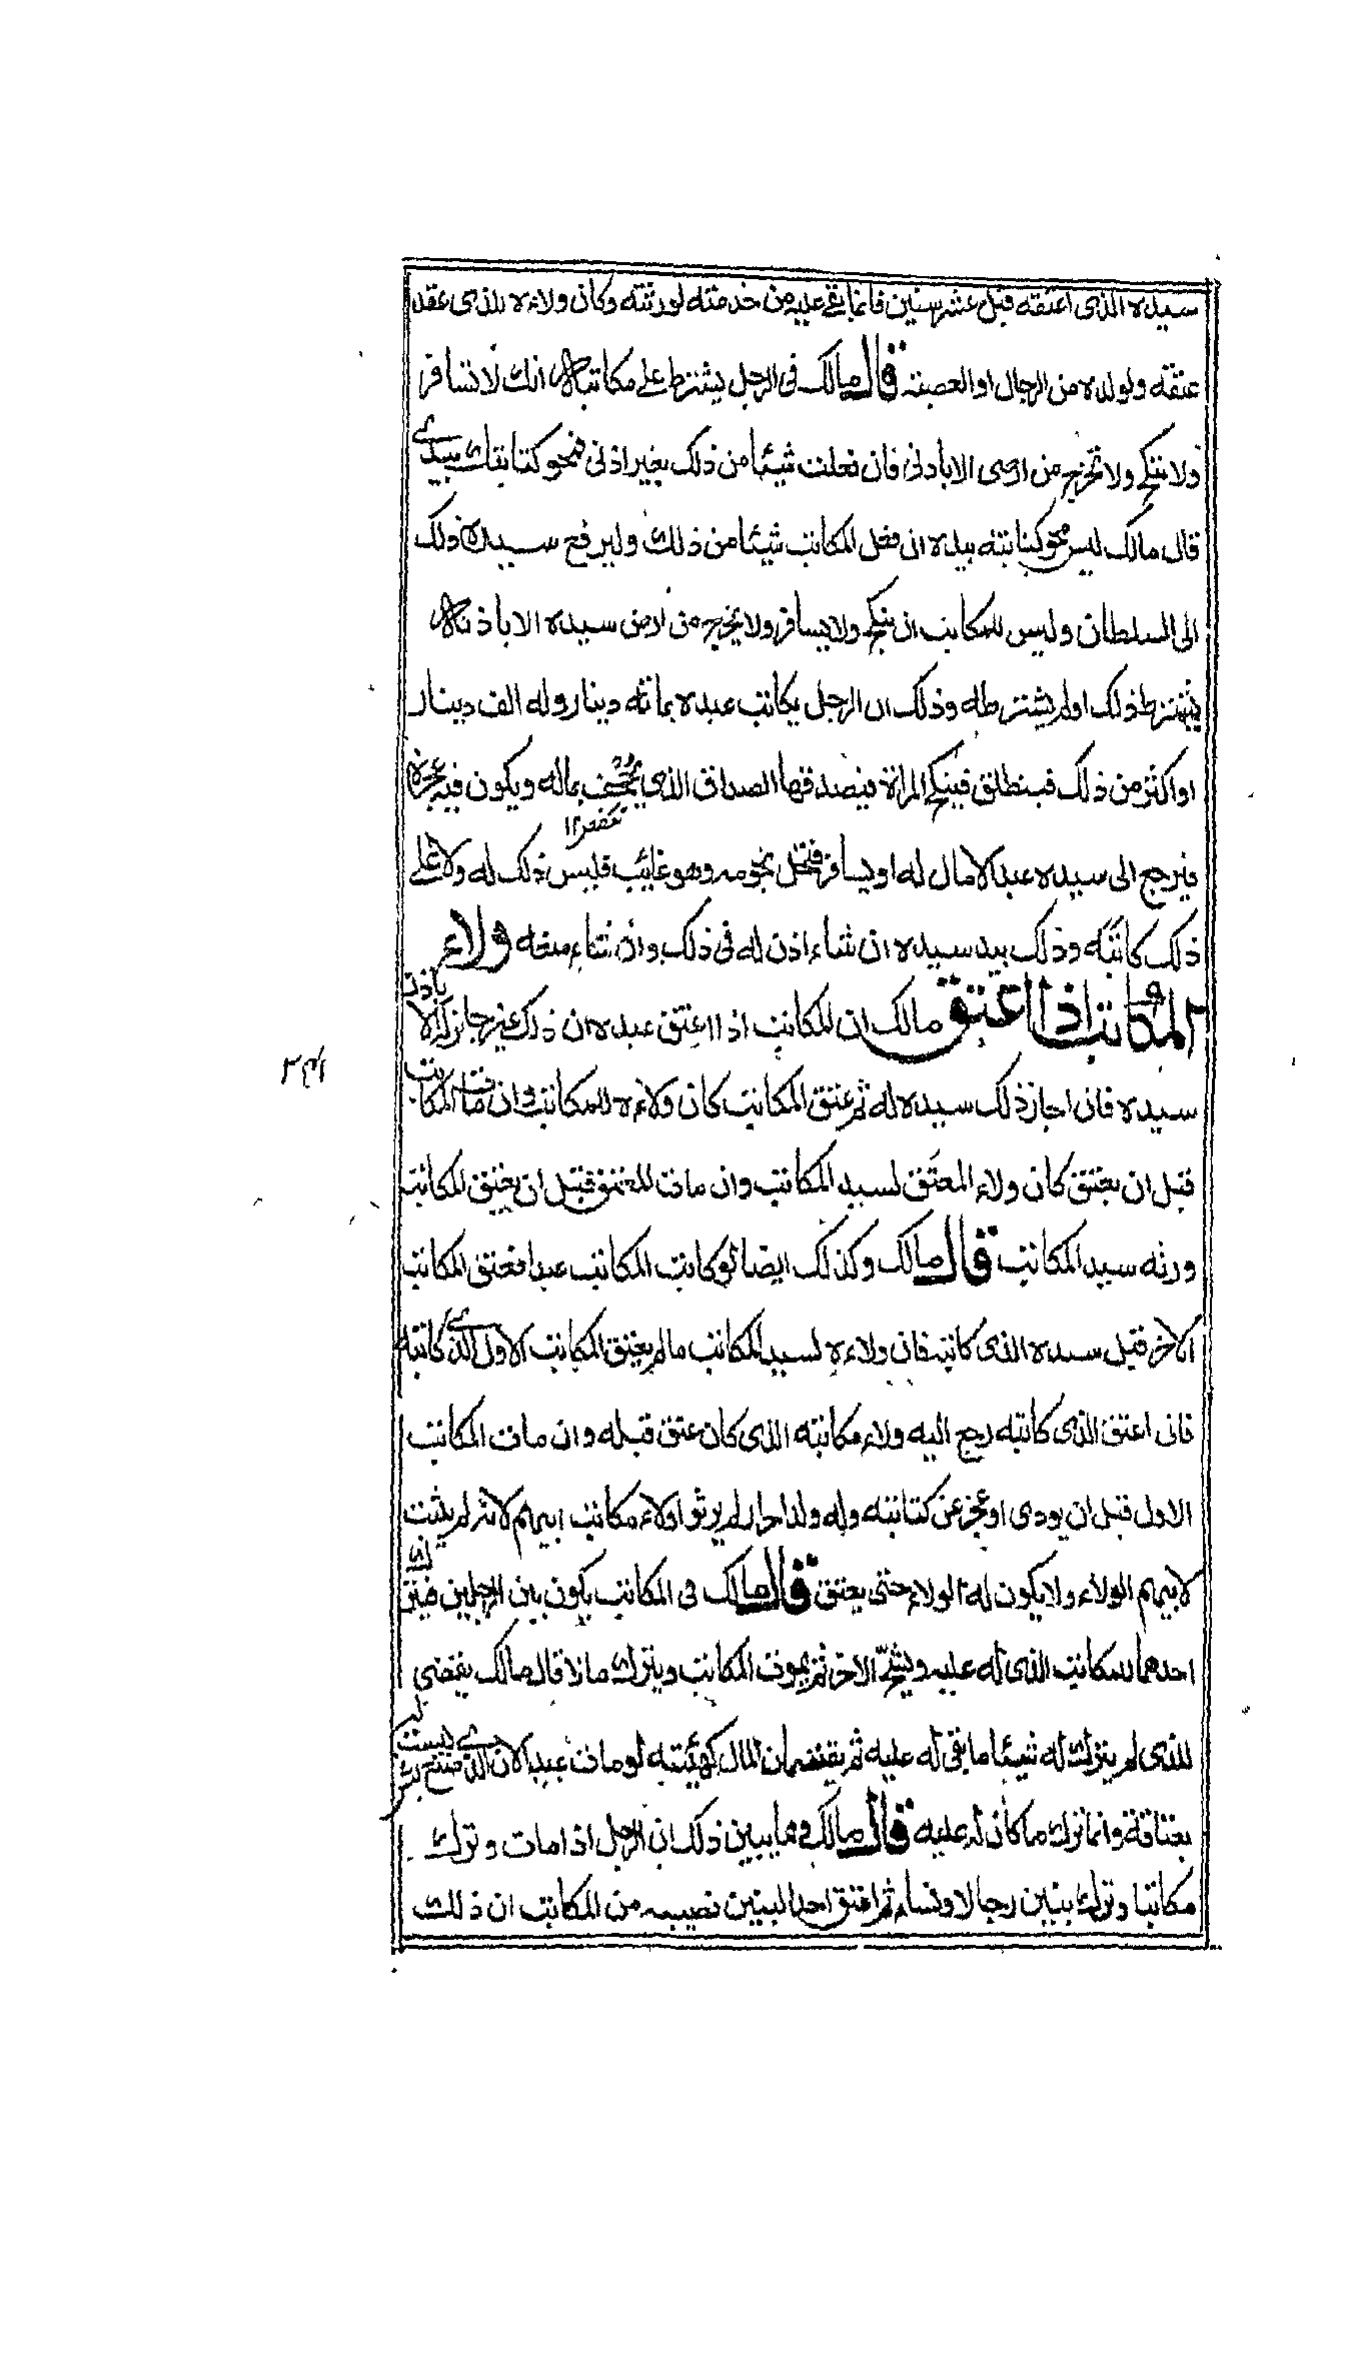 سيده الذى اعتقه قبل عشر سنين فانما بقى عليه من خدمته لورثته وكان ولاءه للذى عقد
عتقه ولولده من الرجال او العصبة قال مالك فى الرجل يشترط على مكاتبه انك لا تسافر
ولا تنكح ولا تخرج من ارضى الا باذنى فان فعلت شيئا من ذلك بغير اذنى فمحو كتابتك بيدى
قال مالك ليس محو كتابته بيده ان فعل المكاتب شيئا من ذلك وليرفع سيده ذلك
الى السلطان وليس للمكاتب ان ينكح ولا يسافر ولا يخرج من ارض سيده الا باذنه
يشترط ذلك او لم يشترطه وذلك ان الرجل يكاتب عبده بمائة دينار وله الف دينار
او اكثر من ذلك فينطلق فينكح المراة فيصدقها الصداق الذى يجحف بماله ويكون فيه عجزه
فيرجع الى سيده عبدا لا مال له او يسافر فتحل نجومه وهو غائب فليس ذلك له ولا على
ذلك كاتبه وذلك بيد سيده ان شاء اذن له فى ذلك وان شاء منعه ولاء
المكاتب اذا اعتق مالك ان المكاتب اذا اعتق عبده ان ذلك غير جائز له الا باذن
سيده فان اجاز ذلك سيده له ثم عتق المكاتب كان ولاءه للمكاتب وان مات المكاتب
قبل ان يعتق كان ولاء المعتق لسيد المكاتب وان مات المعتق قبل ان يعتق المكاتب
ورثه سيد المكاتب قال مالك وكذلك ايضا لو كاتب المكاتب عبدا فعتق المكاتب
الاخر قبل سيده الذى كاتبه فان ولاءه لسيد المكاتب ما لم يعتق المكاتب الاول الذى كاتبه
فان اعتق الذى كاتبه رجع اليه ولاء مكاتبه الذى كان عتق قبله وان مات المكاتب
الاول قبل ان يودى او عجز عن كتابته وله ولد احرار لم يرثوا ولاء مكاتب ابيهم لانه لم يثبت
لابيهم الولاء ولا يكون له الولاء حتى يعتق قال مالك فى المكاتب يكون بين الرجلين فيترك
احدهما للمكاتب الذى له عليه ويشح الاخر ثم يموت المكاتب ويترك مالا قال مالك يقضى
للذى لم يترك له شيئا ما بقى له عليه ثم يقتسمان المال كهيئته لو مات عبدا لان الذى صنع ليست
بعتاقة وانما ترك ما كان له عليه قال مالك ومما يبين ذلك ان الرجل اذا مات وترك
مكاتبا وترك بنين رجالا ونساء ثم اعتق احد البنين نصيبه من المكاتب ان ذلك